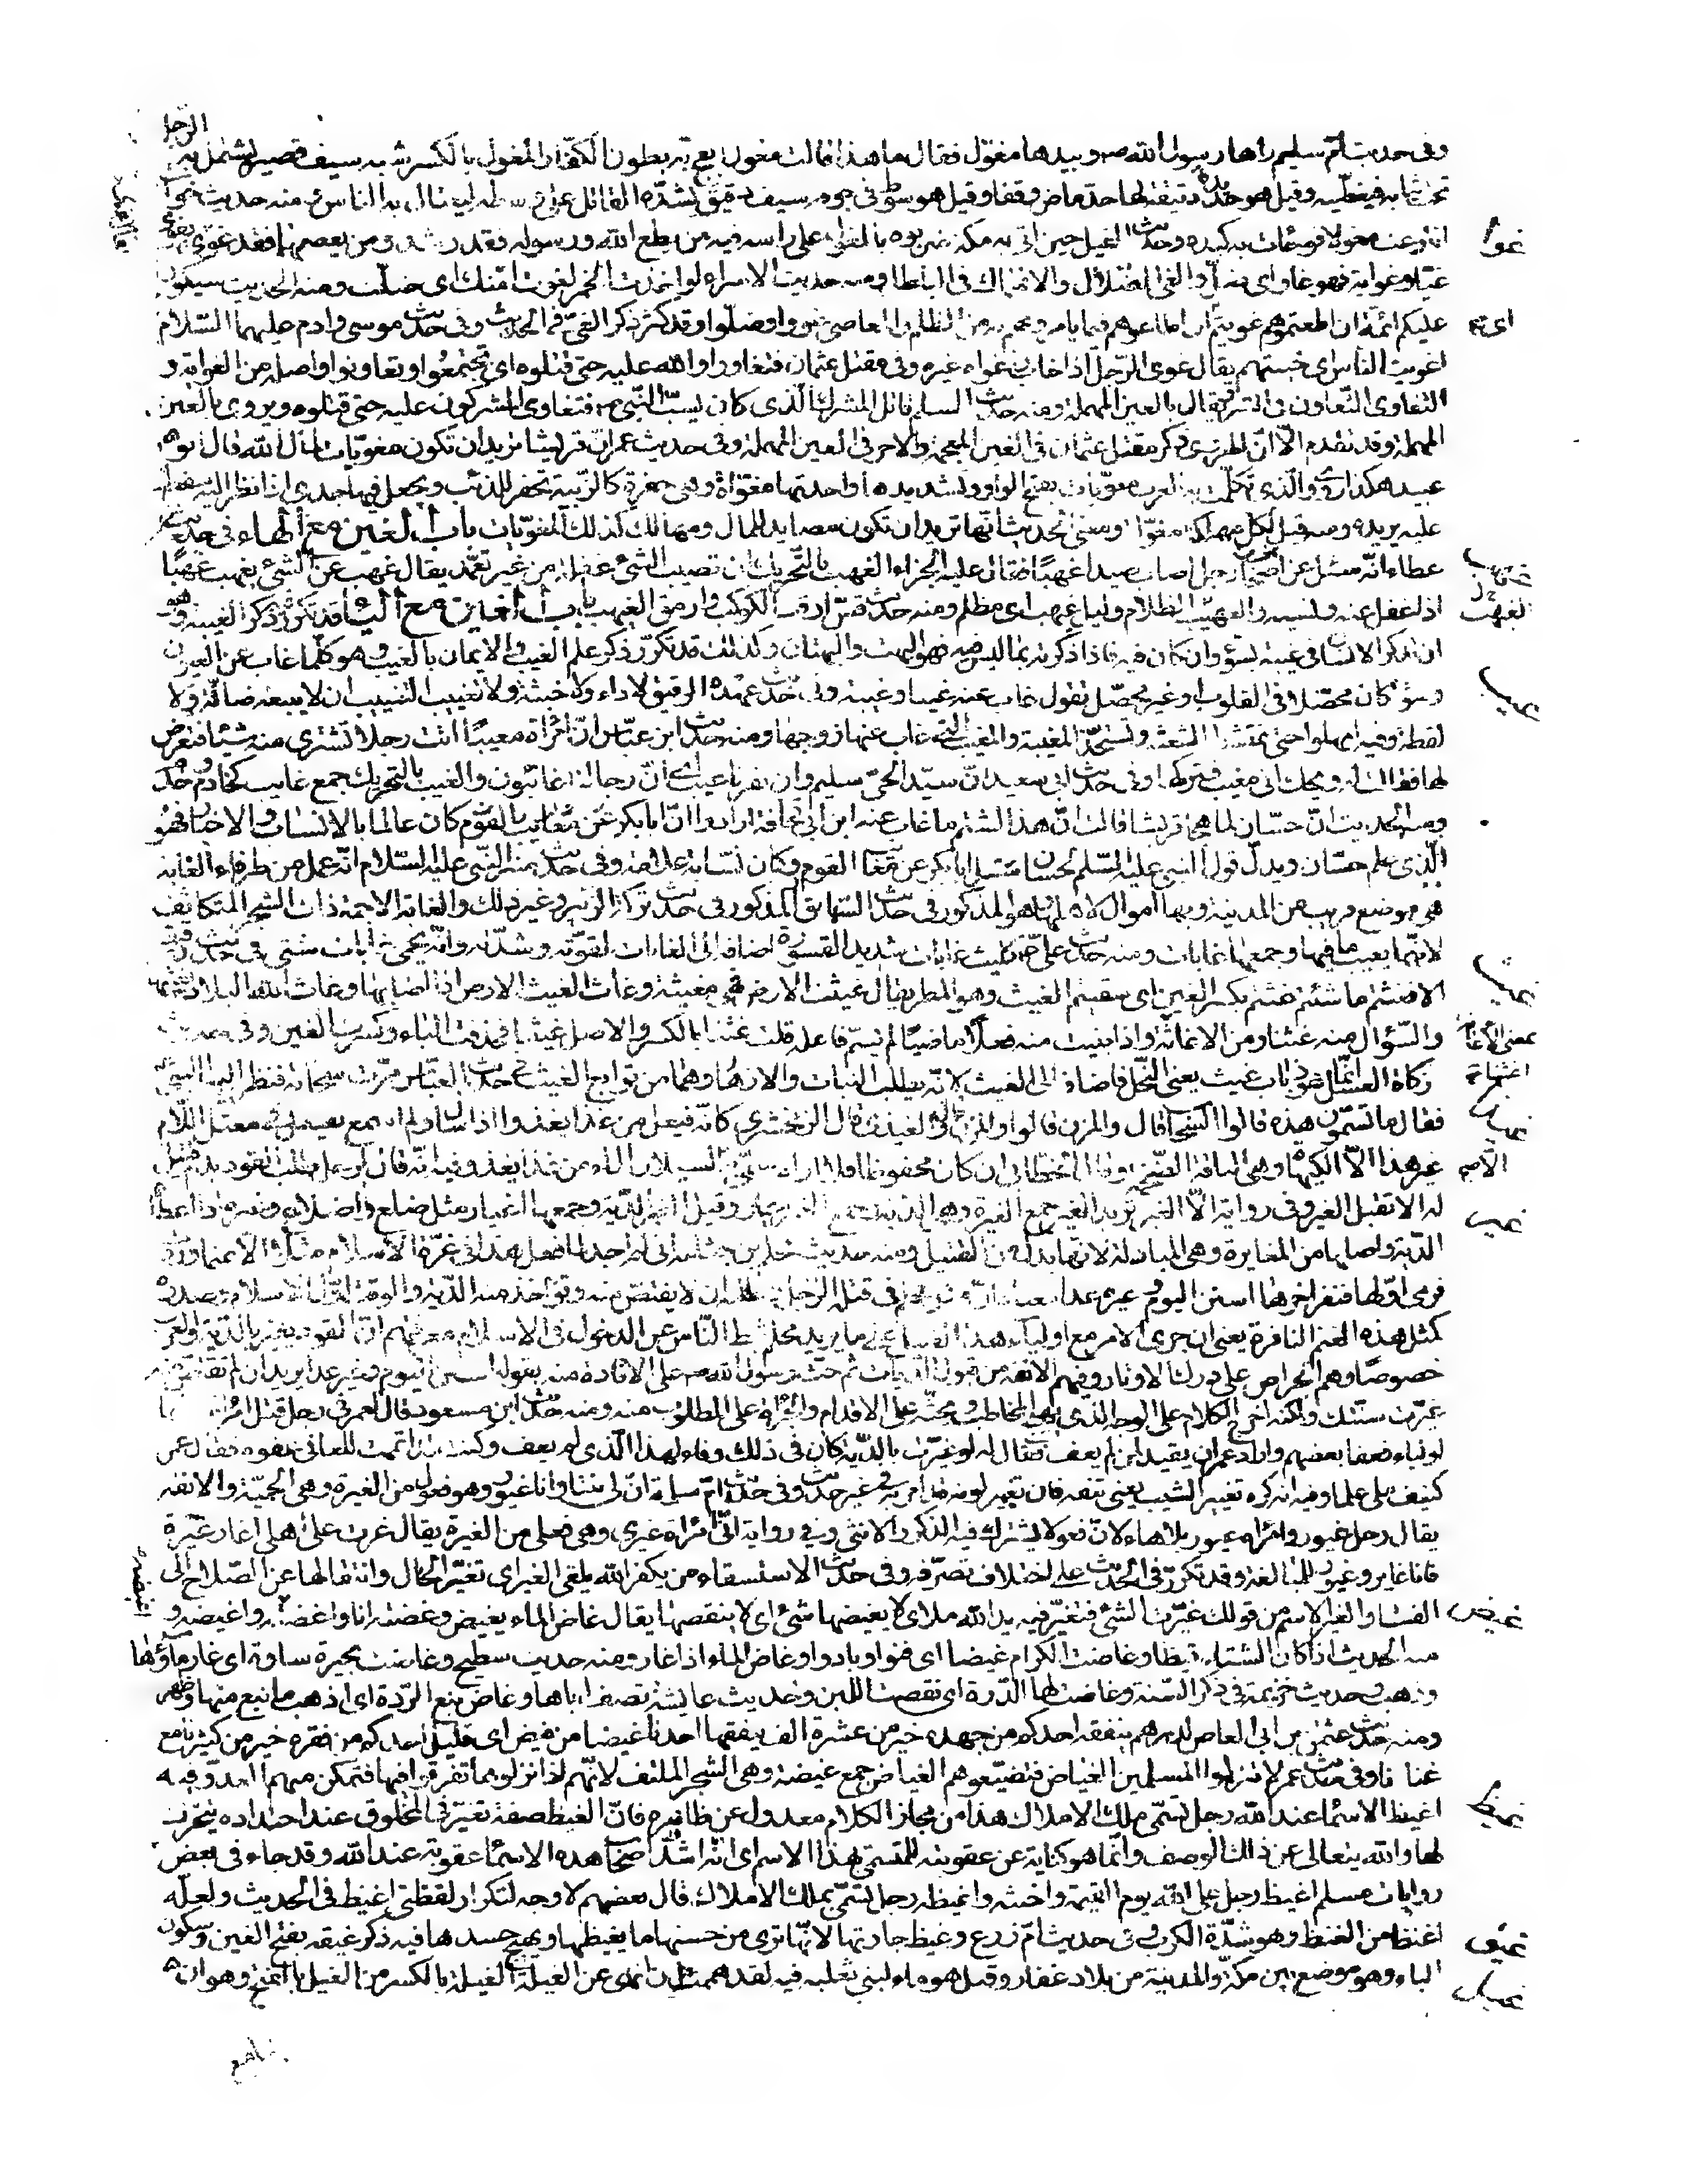 وفى حديث ام سليم راها رسول الله ص وبيدها مغول فقال ما هذا قالت مغول ابعج به بطون الكفار المغول بالكسر شبه سيف قصير يشتمل به الرجل
تحت ثيابه فيغطيه وقيل هو حديدة دقيقة لها حد ماض وقفا وقيل هو سوط فى جوفه سيف دقيق يشده الفاتك على وسطه ليغتال به الناس ومنه حديث
غوا
انتزعت مغولا فوجأت به كبده وحديث الفيل حين اتى به مكة ضربوه بالمغول على راسه فيه من يطع الله ورسوله فقد رشد ومن يعصهما فقد غوى
غيا وغواية فهو غاو اى ضل والغى الضلال والانهماك فى الباطل ومنه حديث الاسراء لو اخذت الخمر لغوت امتك اى ضلت ومنه الحديث سيكون
عليكم ائمة ان اطعتموهم غويتم اى ان اطاعوهم فيما يامرونهم به من الظلم والمعاصى غووا وضلوا وقد كثر ذكر الغى فى الحديث وفى حديث موسى وادم عليهما السلام
اغويت الناس اى خيبتهم يقال غوى الرجل اذا خاب واغواه غيره وفى مقتل عثمان فتغاووا والله عليه حتى قتلوه اى تجمعوا وتعاونوا واصله من الغواية و
التغاوى التعاون فى الشر ويقال بالعين المهملة ومنه حديث المسلم قاتل المشرك الذى كان يسب النبى ص فتغاوى المشركون عليه حتى قتلوه ويروى بالعين
المهملة وقد تقدم الا ان الهروى ذكر مقتل عثمان فى الغين المعجمة والاخر فى العين المهملة وفى حديث عمر ان قريشا تريد ان تكون مغويات لمال الله قال ابو
عبيد هكذا روى والذى تكلمت به العرب مغويات بفتح الواو وتشديدها واحدتها مغواة وهى حفرة كالزبية تحفر للذئب ويجعل فيها جدى اذا نظر اليه سقط
عليه يريده ومنه قيل لكل مهلكة مغواة ومعنى الحديث انها تريد ان تكون مصايد للمال ومهالك كتلك المغويات باب الغين مع الهاء فى حديث
غهب
عطاء انه سئل عن رجل اصاب صيدا غهبا فقال عليه الجزاء الغهب بالتحريك ان تصيب الشئ غفلة من غير تعمد يقال غهب عن الشئ يغهب غهبا
الغيهب
اذا غفل عنه ونسيه والغيهب الظلام وليل غيهب اى مظلم ومنه حديث قس ارقب الكوكب وارمق الغيهب باب الغين مع الياء قد تكرر ذكر الغيبة وهو
ان يذكر الانسان فى غيبته بسوء وان كان فيه فاذا ذكرته بما ليس فيه فهو البهت والبهتان وكذلك قد تكرر ذكر علم الغيب والايمان بالغيب وهو كلما غاب عن العيون
غيب
وسواء كان محصلا فى القلوب او غير محصل تقول غاب عنه غيبا وغيبة وفى حديث عهدة الرقيق لا داء ولا خبثة ولا تغييب التغييب ان لا يبيعه ضالة ولا
لقطة وفيه امهلوا حتى تمتشط الشعثة وتستحد المغيبة والمغيب التى غاب عنها زوجها ومنه حديث ابن عباس ان امراة مغيبا اتت رجلا تشترى منه شيئا فتعرض
لها فقالت له ويحك انى مغيب فتركها وفى حديث ابى سعيد ان سيد الحى سليم وان نفرنا غيب اى ان رجالنا غائبون والغيب بالتحريك جمع غايب كخادم وخدم
ومنه الحديث ان حسان لما هجا قريشا قالت ان هذا الشتم ما غاب عنه ابن ابى قحافة ارادوا ان ابا بكر كان عالما بالانساب والاخبار فهو
الذى علم حسان ويدل قول النبى عليه السلم لحسان سل ابا بكر عن معايب القوم وكان نسابة علامة وفى حديث منبر النبى عليه السلام انه عمل من طرفاء الغابة
هى موضع قريب من المدينة وبها اموال لاهلها وهو المذكور فى حديث السباق المذكور فى حديث تركة الزبير وغير ذلك والغابة الاجمة ذات الشجر المتكاثف
لانها تغيب ما فيها وجمعها غابات ومنه حديث على كليث غابات شديد القسورة اضافه الى الغابات لقوته وشدته وانه يحمى غابات شتى وفى حديث رقيقة
غيث
الا فغثتم ما شئتم غثتم بكسر الغين اى سقيتم الغيث وهو المطر يقال غيثت الارض فهى مغيثة وغاث الغيث الارض اذا اصابها وغاث الله البلاد يغيثها
والسؤال منه غثنا ومن الاغاثة واذا بنيت منه فعلا ماضيا لم يسم فاعله قلت غثنا بالكسر والاصل غيثنا فحذفت الياء وكسرت الغين وفى حديث
زكاة العسل انما هو ذباب غيث يعنى النحل فاضافه الى الغيث لانه يطلب النبات والازهار وهما من توابع الغيث فى حديث العباس مرت سحابة فنظر اليها النبى
فقال ما تسمون هذه قالوا السحاب قال والمزن قالوا والمزن قال والغيذى قال الزمخشرى كانه فيعل من غذا يغذو اذا سال ولم اسمع بفيعل فى معتل اللام
غير هذا الا الكيهاة وهى الناقة الضخمة وقال الخطابى ان كان محفوظا فلا اراه سمى به الا لسيلان الماء من غذا يغذو وفيه انه قال لرجل طلب القود بدم قتيل
غير
له الا تقبل الغير وفى رواية الا الغير تريد الغير جمع الغيرة وهى الدية وجمع الغير اغيار وقيل الغير الدية وجمعها اغيار مثل ضلع واضلاع وغيره اذا اعطاه
الدية واصلها من المغايرة وهى المبادلة لانها بدل من القتيل ومنه حديث محلم بن جثامة انى لم اجد لما فعل هذا فى غرة الاسلام مثلا الا غنما وردت
فرمى اولها فنفر اخرها اسنن اليوم وغير غدا معناه ان مثل محلم فى قتله الرجل وطلبه ان لا يقتص منه وتؤخذ منه الدية والوقت اول الاسلام وصدره
كمثل هذه الغنم النافرة يعنى ان جرى الامر مع اولياء هذا القتيل على ما يريد محلم ثبط الناس عن الدخول فى الاسلام معرفتهم ان القود يغير بالدية والعرب
خصوصا وهم الحراص على درك الاوتار وفيهم الانفة من قبول الديات ثم حث رسول الله ص على الاقادة منه بقوله اسنن اليوم وغير غدا يريد ان لم تقتص منه
غيرت سنتك ولكنه اخرج الكلام على الوجه الذى يهيج المخاطب ويحثه على الاقدام والجراة على المطلوب منه ومنه حديث ابن مسعود قال لعمر فى رجل قتل امراة
اولياء فعفا بعضهم واراد عمران يقيد لمن لم يعف فقال له لو غيرت بالدية كان فى ذلك وفاء لهذا الذى لم يعف وكنت قد اتممت للعافى عفوه فقال عمر
كنيف ملئ علما وفيه انه كره تغيير الشيب يعنى نتفه فان تغيير لونه قد امر به فى غير حديث وفى حديث ام سلمة ان لى بنتا وانا غيور وهو فعول من الغيرة وهى الحمية والانفة
يقال رجل غيور وامراة غيور بلا هاء لان فعولا يشترك فيه الذكر والانثى وفى رواية انى امراة غيرى وهى فعلى من الغيرة يقال غرت على اهلى اغار غيرة
فانا غاير وغيور للمبالغة وقد تكرر فى الحديث على اختلاف تصرفه وفى حديث الاستسقاء من يكفر الله يلقى الغير اى تغير الحال وانتقالها عن الصلاح الى
غيض
الفساد والغير الاسم من قولك غيرت الشئ فتغير فيه يد الله ملاى لا يغيضها شئ اى لا ينقصها يقال غاض الماء يغيض وغضته انا واغضته واغيضه و
منه الحديث اذا كان الشتاء قيظا وغاضت الكرام غيضا اى فنوا وبادوا وغاض الماء اذا غار ومنه حديث سطيح وغاضت بحيرة ساوة اى غار ماؤها
وذهب وفى حديث خزيمة فى ذكر السنة وغاضت لها الدرة اى نقصت اللبن وحديث عايشة تصف اباها وغاض نبع الردة اى اذهب ما نبع منها وظهر
ومنه حديث عثمن بن ابى العاص لدرهم ينفقه احدكم من جهده خير من عشرة الف ينفقها احدنا غيضا من فيض اى قليل احدكم من فقره خير من كثيرنا مع
غنانا وفى حديث عمر لا تنزلوا المسلمين الغياض فتضيعوهم الغياض جمع غيضة وهى الشجر الملتف لانهم اذا نزلوها تفرقوا فيها فتمكن منهم العدو فيه
غيظ
اغيظ الاسماء عند الله رجل تسمى ملك الاملاك هذا من مجاز الكلام معدول عن ظاهره فان الغيظ صفة تغير فى المخلوق عند احتداده يتحرك
لها والله يتعالى عن ذلك الوصف وانما هو كناية عن عقوبته للمتسمى بهذا الاسم اى انه اشد اصحاب هذه الاسماء عقوبة عند الله وقد جاء فى بعض
روايات مسلم اغيظ رجل على الله يوم القيمة واخبثه واغيظه رجل تسمى بملك الاملاك قال بعضهم لا وجه لتكرار لفظتى اغيظ فى الحديث ولعله
غيق
اغنظ من الغنظ وهو شدة الكرب فى حديث ام زرع وغيظ جارتها لانها ترى من حسنها ما يغيظها ويهيج حسدها فيه ذكر غيقة بفتح الغين وسكون
غيل
الياء وهو موضع بين مكة والمدينة من بلاد غفار وقيل هو ماء لبنى ثعلبة فيه لقد هممت ان انهى عن الغيلة الغيلة بالكسر من الغيل بالفتح وهو ان